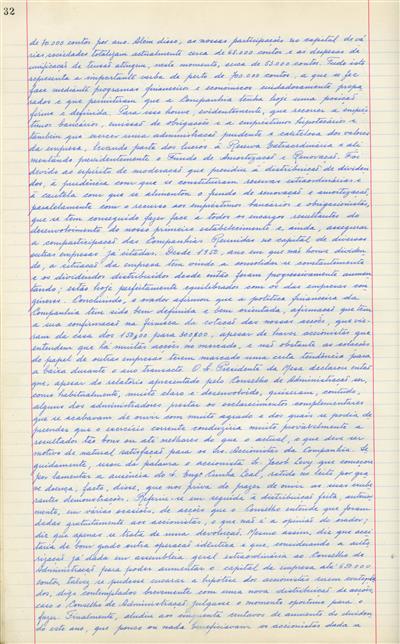 32
de 70.000 contos por ano. Além disso, as nossas participações no capital de vá-
rias sociedades totalizam actualmente cerca de 68.000 contos e as despesas de
unificação de tensão atingem, neste momento, cerca de 53.000 contos. Tudo isto
representa a importante verba de perto de 700.000 contos, a que se fez
face mediante programas financeiros e económicos cuidadosamente prepa-
rados e que permitiram que a Companhia tenha hoje uma posição
firme e definida. Para isso houve, evidentemente, que recorrer a emprés-
timos bancários, emissão de obrigações e a empréstimos hipotecários e
também que exercer uma administração prudente e cautelosa dos valores
da empresa, levando parte dos lucros à Reserva Extraordinária e ali-
mentando previdentemente o Fundo de Amortização e Renovação. Foi
devido ao espírito de moderação que presidiu à distribuição de dividen-
dos, à prudência com que se constituiram reservas extraordinárias e
à cautela com que se alimentou o fundo de renovação e amortização,
paralelamente com o recurso aos empréstimos bancários e obrigacionistas,
que se tem conseguido fazer face a todos os encargos resultantes do
desenvolvimento do nosso primeiro estabelecimento e ainda, assegurar
a comparticipação das Companhias Reunidas no capital de diversas
outras empresas já citadas. Desde 1950, ano em que não houve dividen-
do, a situação da empresa tem vindo a consolidar-se constantemente
e os dividendos distribuídos desde então foram progressivamente aumen-
tando; estão hoje perfeitamente equilibrados com os das empresas con-
géneres. Concluindo, o orador afirmou que a política financeira da
Companhia tem sido bem definida e bem orientada, afirmação que tem
a sua confirmação na firmeza da cotação das nossas acções, que vie-
ram da casa dos 150$00 para 300$00, apesar de haver accionistas que
entendem que há muitas acções no mercado, e não obstante as cotações
do papel de outras empresas terem marcado uma certa tendência para
a baixa durante o ano transacto. O Sr. Presidente da Mesa declarou então
que, apesar do relatório apresentado pelo Conselho de Administração ser,
como habitualmente, muito claro e desenvolvido, quiseram, contudo,
alguns dos administradores, prestar os esclarecimentos complementares
que se acabavam de ouvir com muito agrado e dos quais se podia de-
preender que o exercício corrente conduziria muito provavelmente a
resultados tão bons ou até melhores do que o actual, o que deve ser
motivo de natural satisfação para os Srs. Accionistas da Companhia. Se-
guidamente, usou da palavra o Accionista Sr. Jacob Levy que começou
por lamentar a ausência do Sr. Engº Cunha Leal, retido no leito por gra-
ve doença, facto, disse, que nos priva do prazer de ouvir as suas exube-
rantes demonstrações. Referiu-se em seguida à distribuição feita, anterior-
mente, em várias ocasiões, de acções que o Conselho entende que foram
dadas gratuitamente aos accionistas, o que não é a opinião do orador;
diz que apenas se trata de uma devolução. Mesmo assim, diz que acei-
taria de bom grado outra operação idêntica e que, considerando a auto-
rização já dada em assembleia geral extraordinária ao Conselho de
Administração para poder aumentar o capital da empresa até 650.000
contos, talvez se pudesse encarar a hipótese dos accionistas serem contempla-
dos, digo contemplados brevemente com uma nova distribuição de acções,
caso o Conselho de Administração julgasse o momento oportuno para o
fazer. Finalmente, aludiu aos cinquenta centavos de aumento de dividen-
do este ano, que pouco ou nada beneficiavam os accionistas dada a